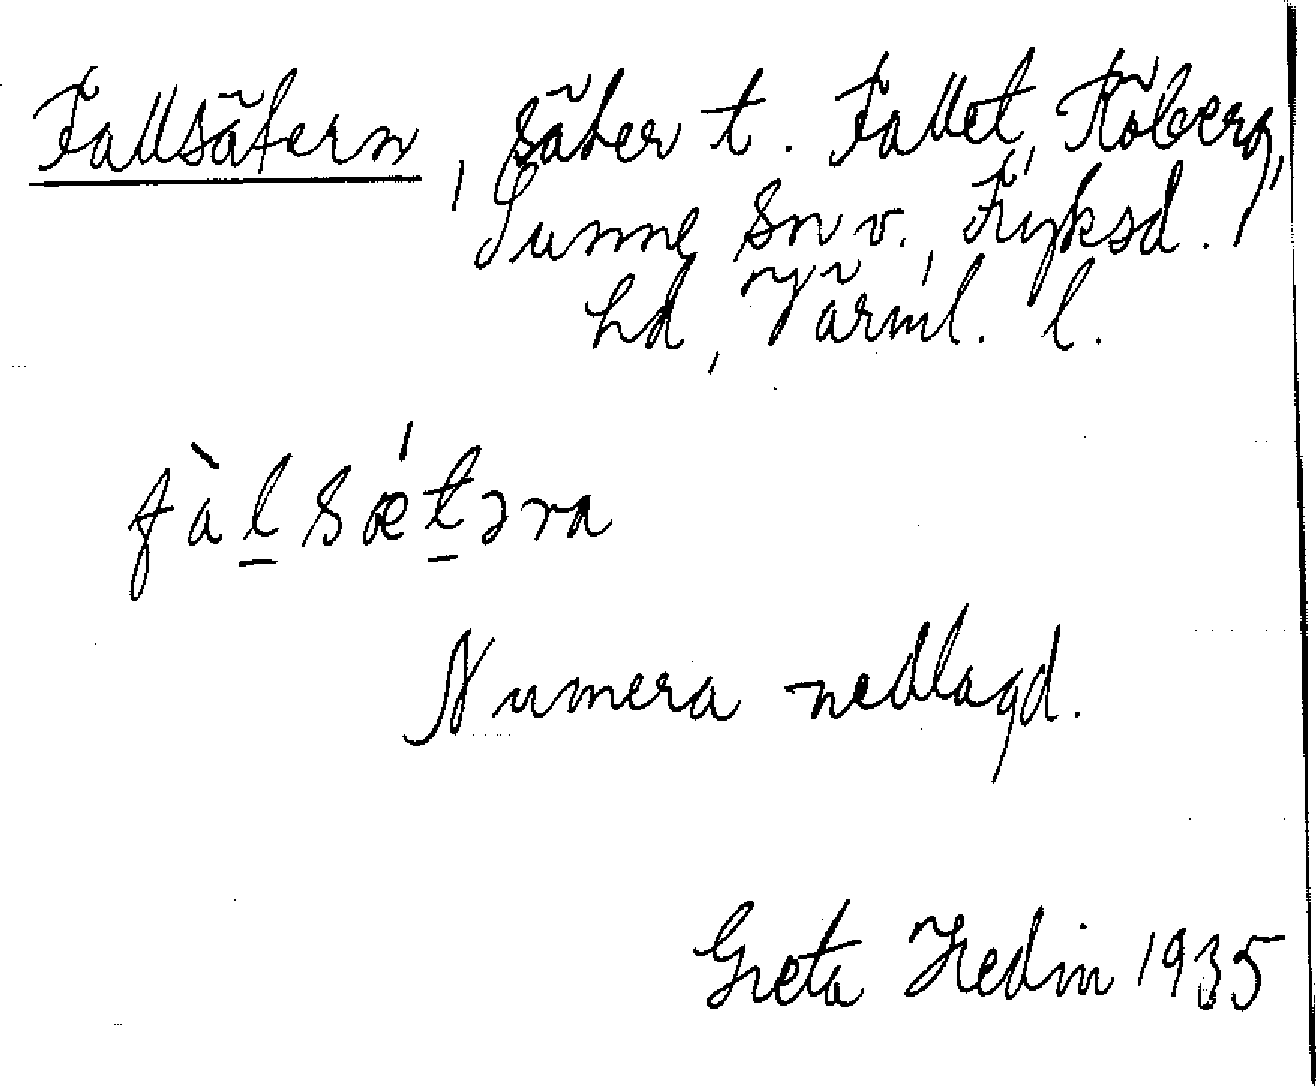 Fallsätern, säter t. Fallet, Flåberg,
Sunne sn v., Fryksd.
hd, Värml. l.
fàl̠sǽt̠əra
Numera nedlagd.
Greta Hedin 1935